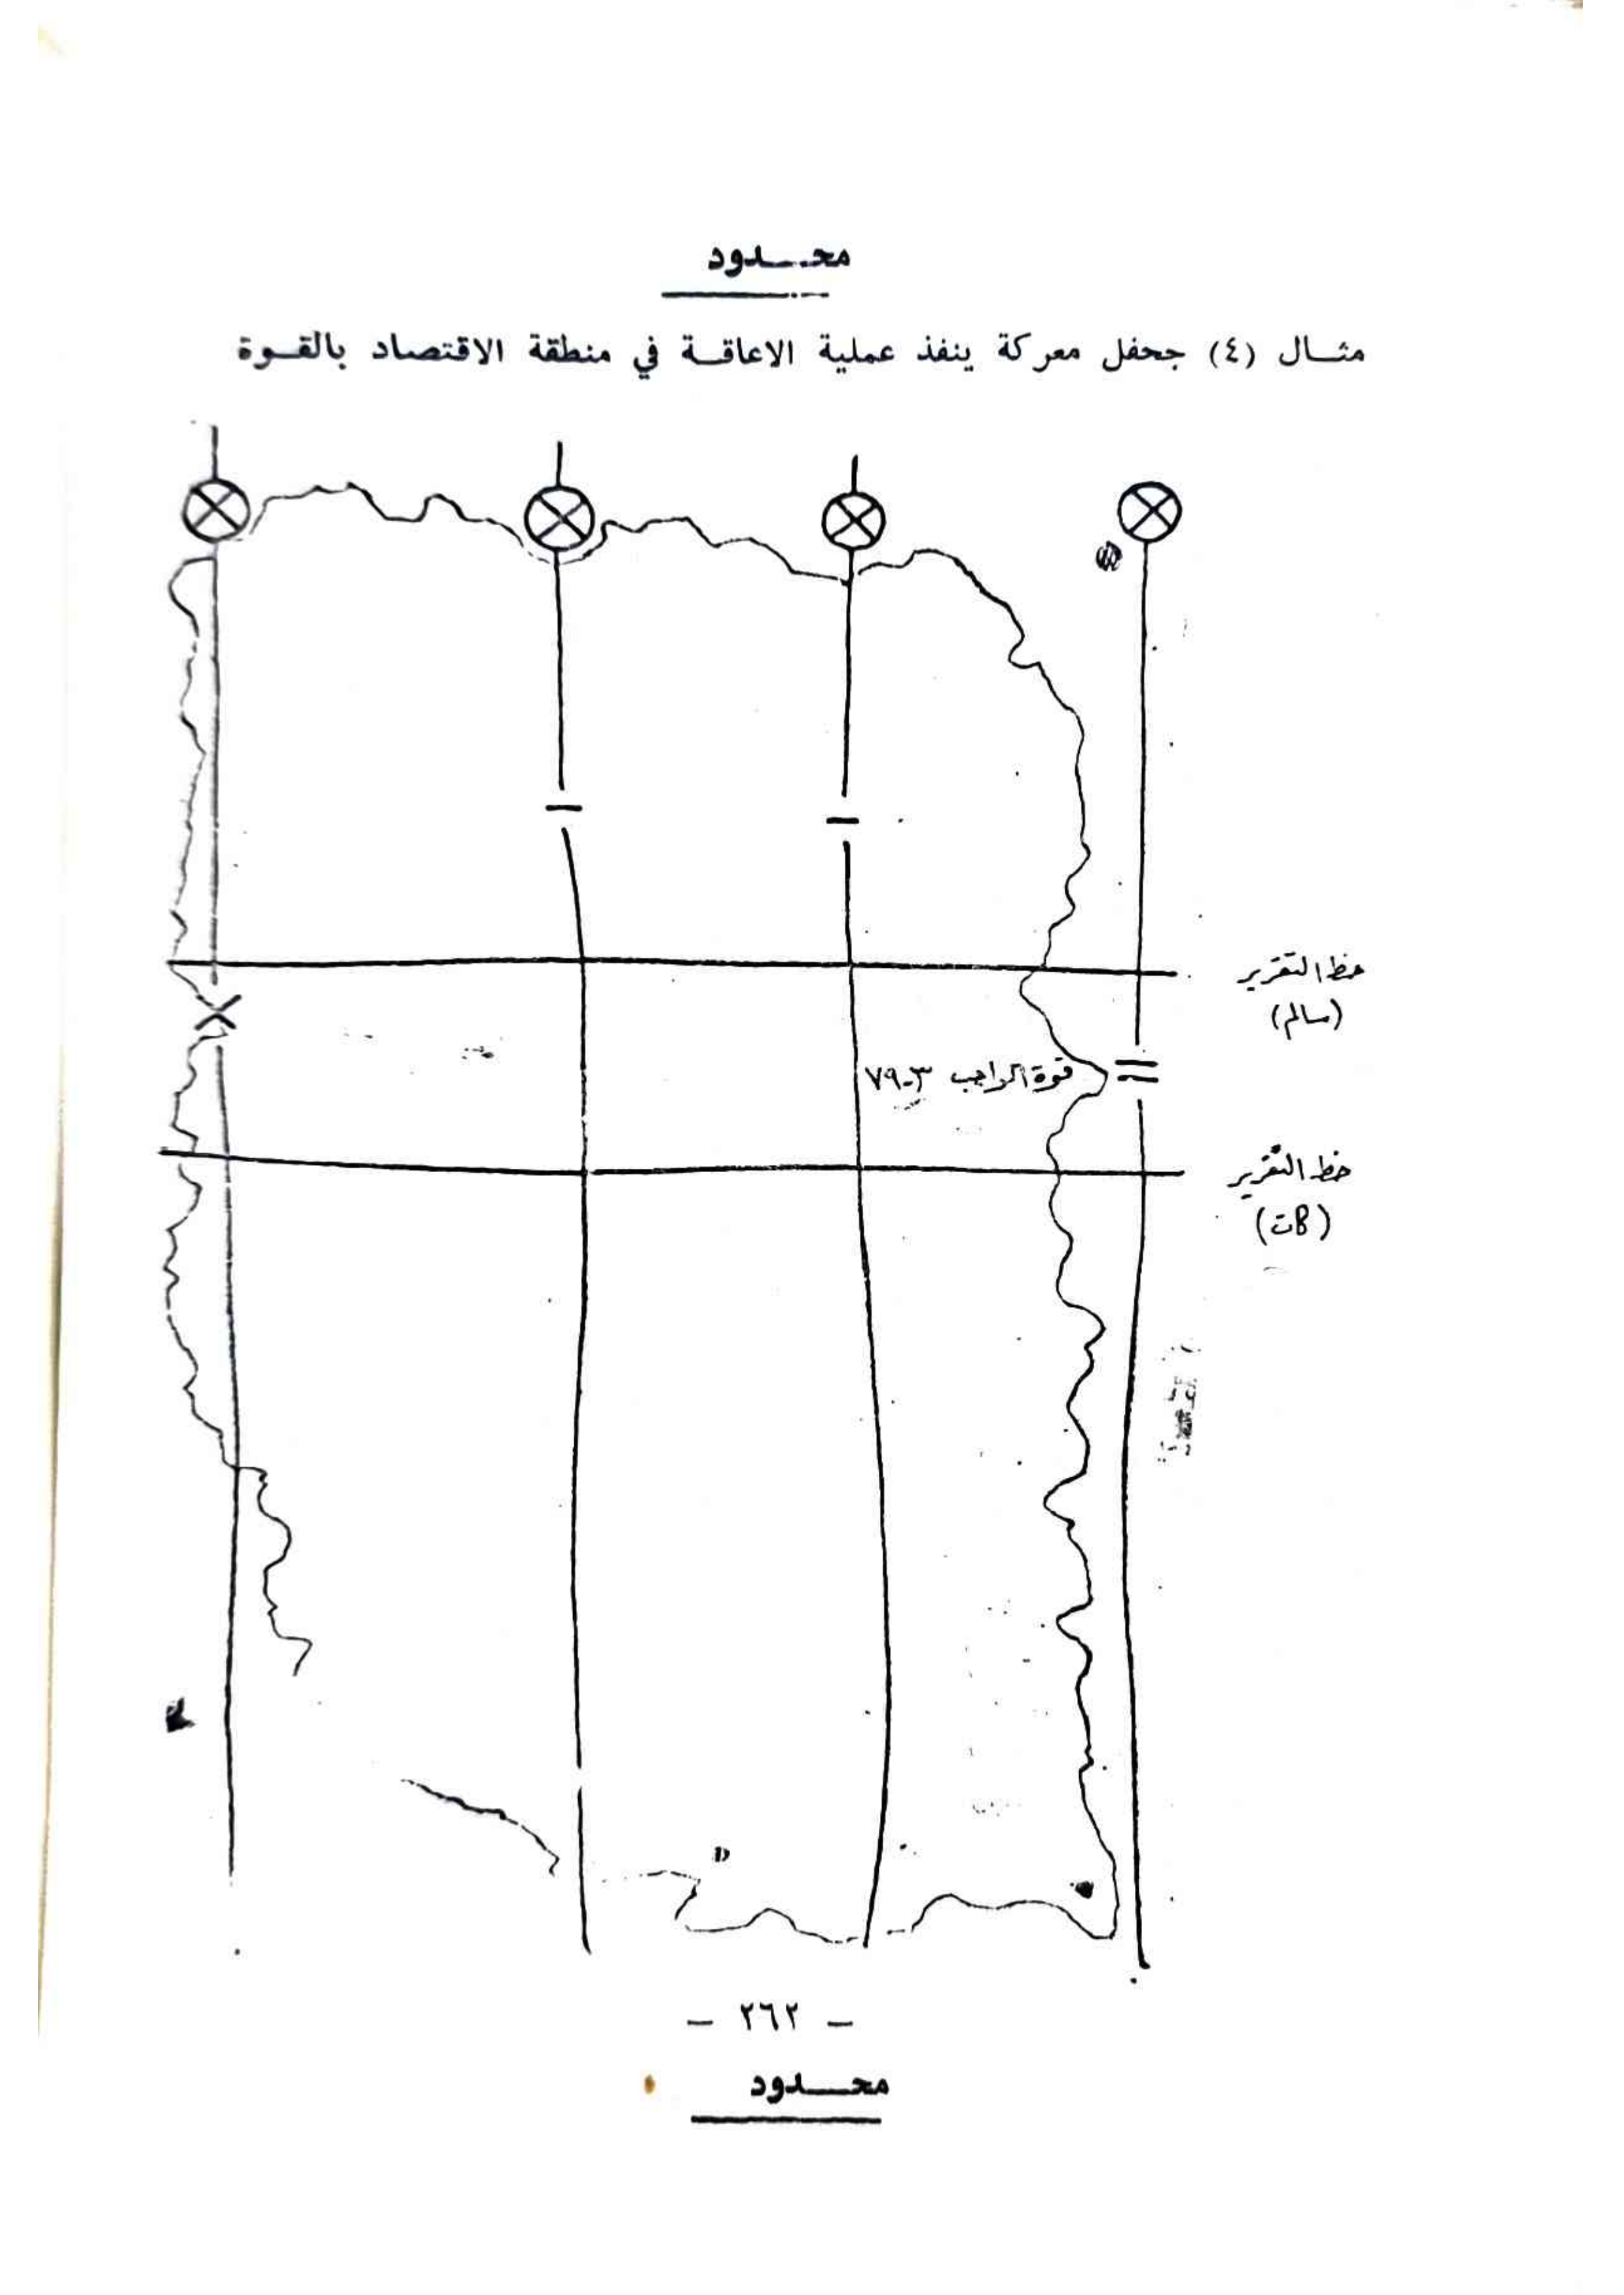 محدود
مثال (٤) جحفل معركة ينفذ عملية الاعاقة في منطقة الاقتصاد بالقوة
خط التقرير
(سالم)
قوة الواجب ٣-٧٩
خط التقرير
- ٢٦٢ -
محدود